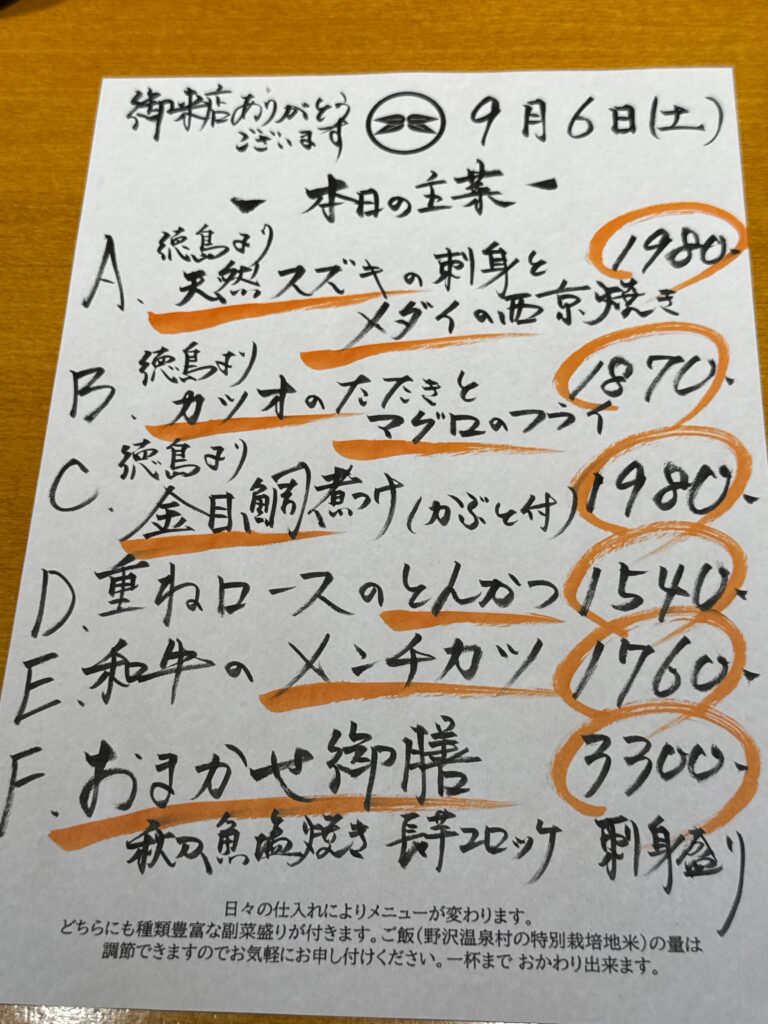 御来店ありがとう
ございます
9月6日(土)
本日の主菜
A. 徳島より
天然スズキの刺身と 1980-
メダイの西京焼き
B. 徳島より
カツオのたたきと 1870-
マグロのフライ
C. 徳島より
金目鯛煮つけ(かぶと付) 1980-
D. 重ねロースのとんかつ 1540-
E. 和牛のメンチカツ 1760-
F. おまかせ御膳 3300-
秋刀魚塩焼き 長芋コロッケ 刺身盛り
日々の仕入れによりメニューが変わります。
どちらにも種類豊富な副菜盛りが付きます。ご飯(野沢温泉村の特別栽培地米)の量は
調節できますのでお気軽にお申し付けください。一杯まで おかわり出来ます。